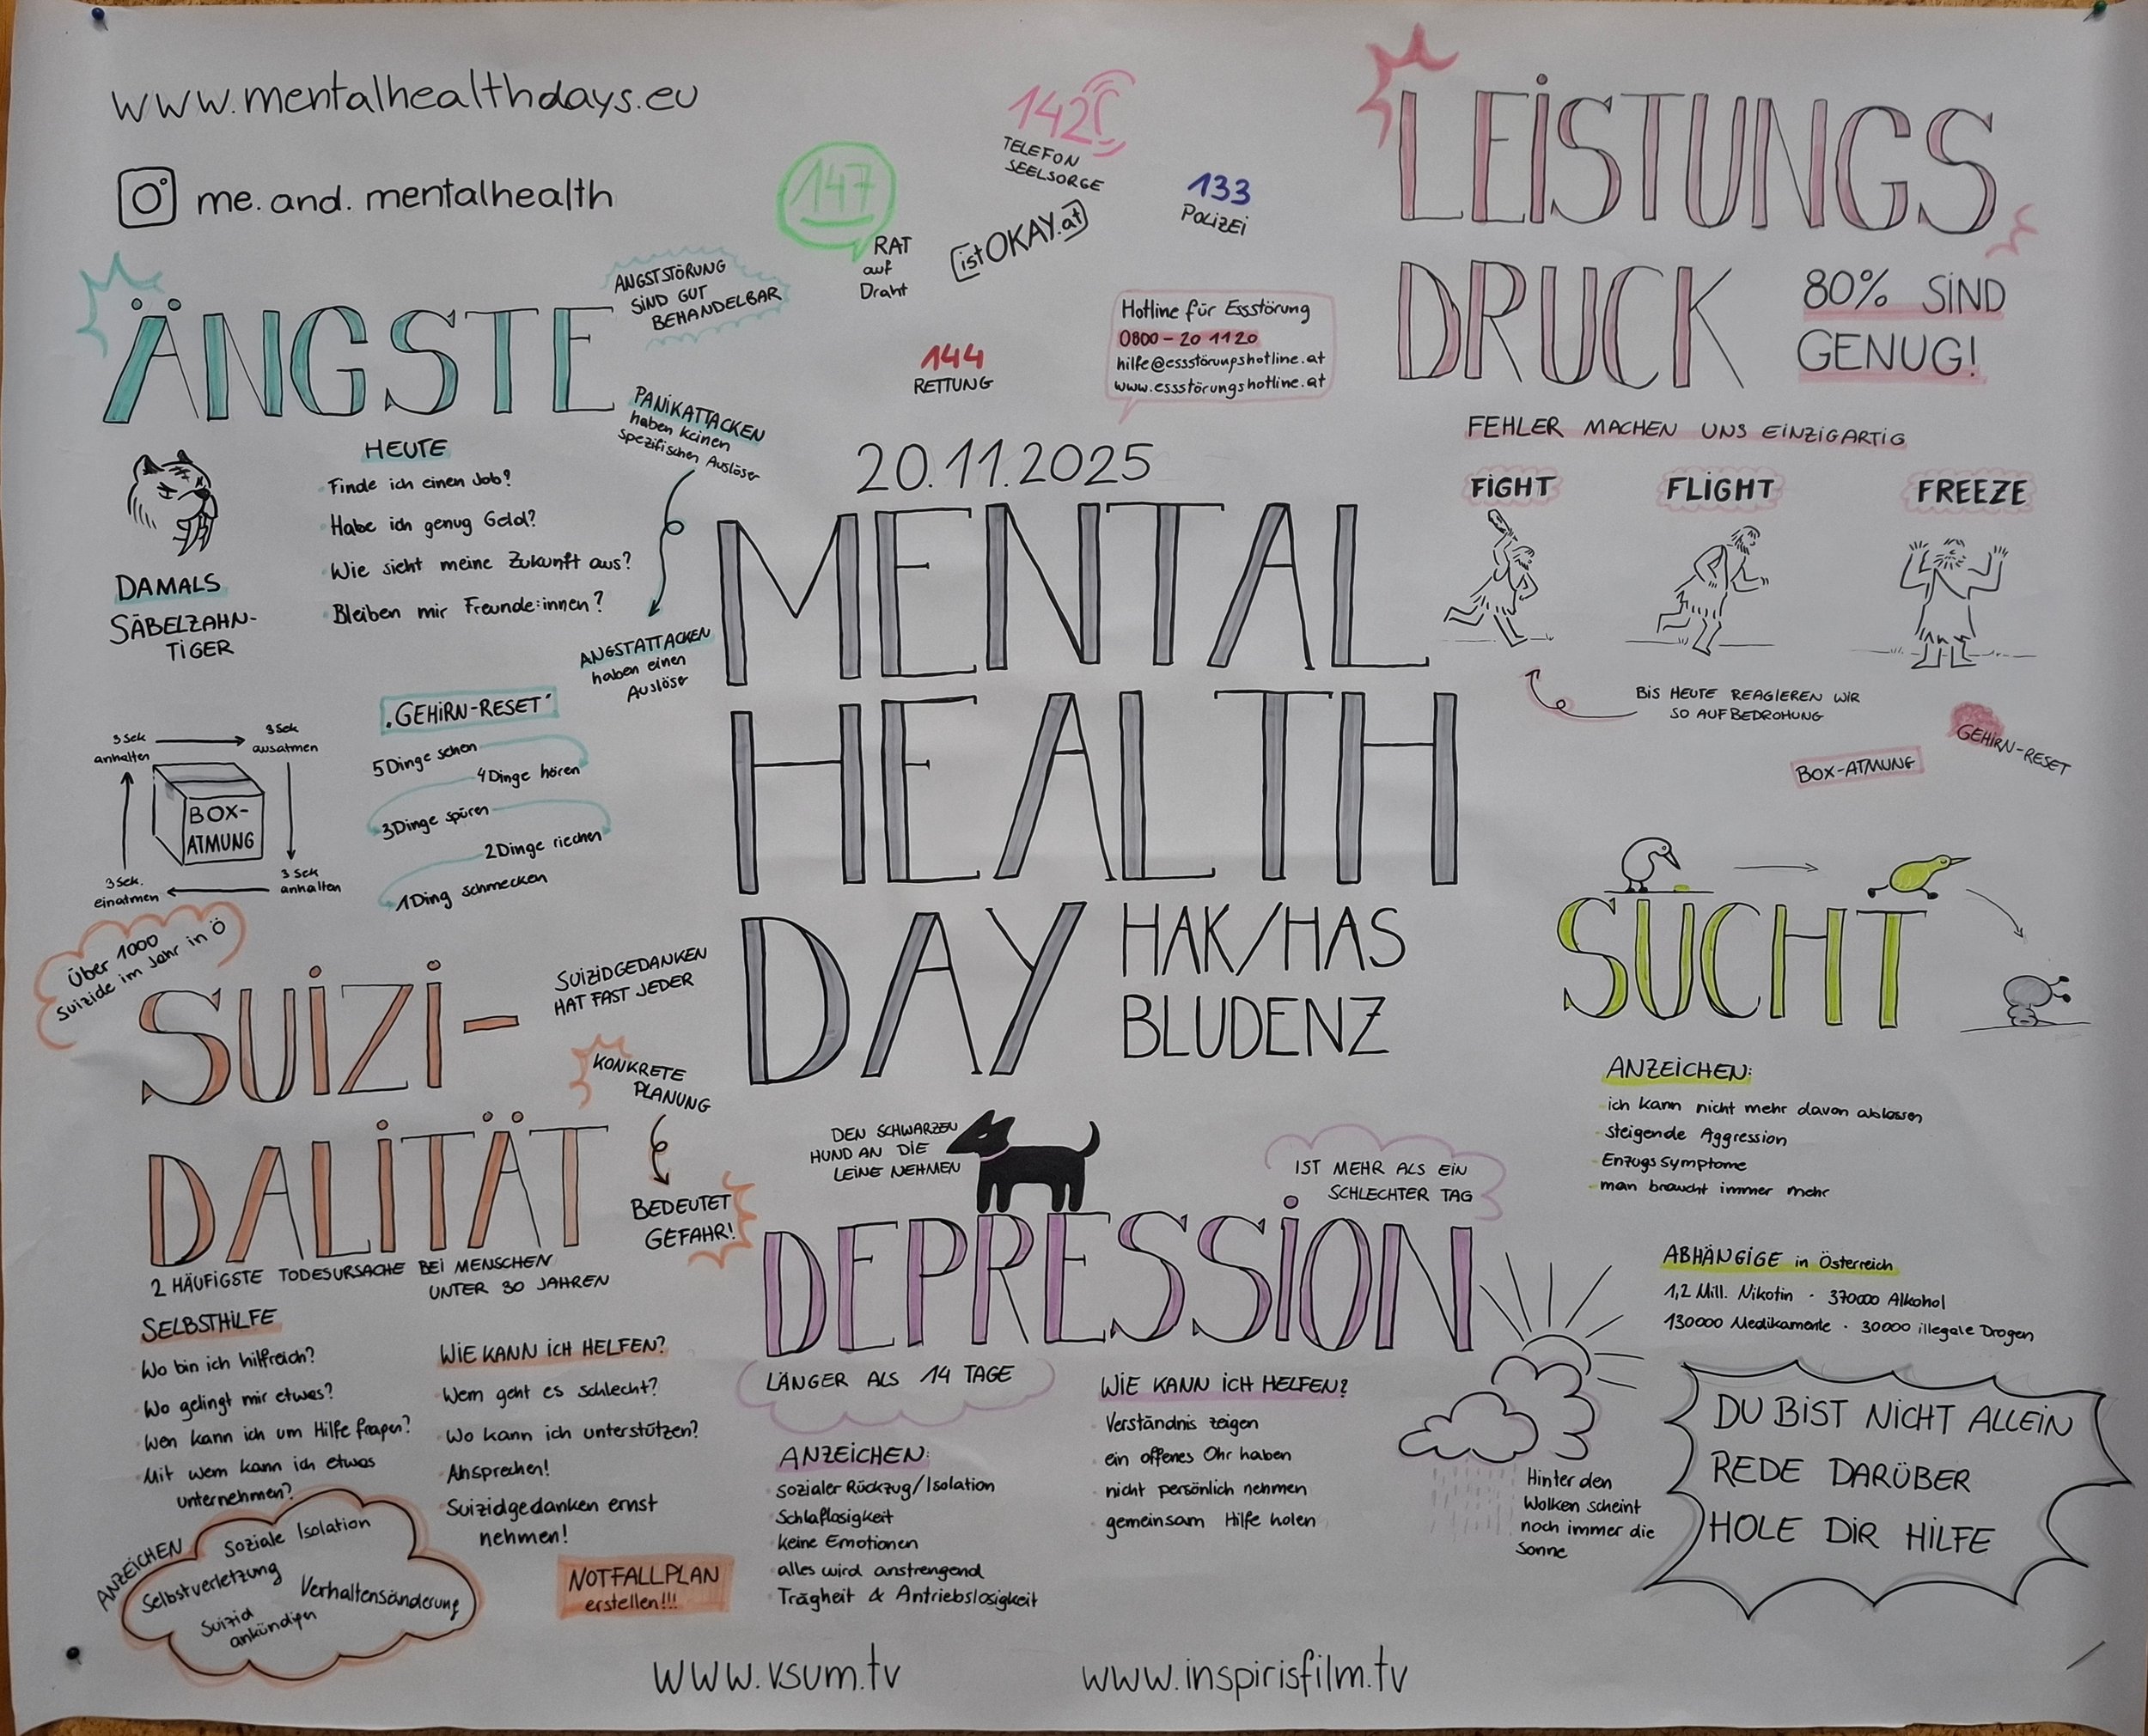 www.mentalhealthdays.eu
me.and.mentalhealth
147
RAT
auf
Draht
142
TELEFON
SEELSORGE
istOKAY.at
133
POLIZEI
144
RETTUNG
Hotline für Essstörung
0800-20 11 20
hilfe@essstörungshotline.at
www.essstörungshotline.at
LEISTUNGS
DRUCK
80% SIND
GENUG!
FEHLER MACHEN UNS EINZIGARTIG
FIGHT
FLIGHT
FREEZE
BIS HEUTE REAGIEREN WIR
SO AUF BEDROHUNG
BOX-ATMUNG
GEHIRN-RESET
ÄNGSTE
ANGSTSTÖRUNG
SIND GUT
BEHANDELBAR
PANIKATTACKEN
haben keinen
spezifischen Auslöser
ANGSTATTACKEN
haben einen
Auslöser
DAMALS
SÄBELZAHN-
TIGER
HEUTE
Finde ich einen Job?
Habe ich genug Geld?
Wie sieht meine Zukunft aus?
Bleiben mir Freunde:innen?
3 Sek
anhalten
3 Sek
ausatmen
BOX-
ATMUNG
3 Sek.
einatmen
3 Sek
anhalten
"GEHIRN-RESET"
5 Dinge sehen
4 Dinge hören
3 Dinge spüren
2 Dinge riechen
1 Ding schmecken
20.11.2025
MENTAL
HEALTH
DAY
HAK/HAS
BLUDENZ
Über 1000
Suizide im Jahr in Ö
SUIZI-
DALITÄT
SUIZIDGEDANKEN
HAT FAST JEDER
KONKRETE
PLANUNG
BEDEUTET
GEFAHR!
2 HÄUFIGSTE TODESURSACHE BEI MENSCHEN
UNTER 30 JAHREN
SELBSTHILFE
Wo bin ich hilfreich?
Wo gelingt mir etwas?
Wen kann ich um Hilfe fragen?
Mit wem kann ich etwas
unternehmen?
WIE KANN ICH HELFEN?
Wem geht es schlecht?
Wo kann ich unterstützen?
Ansprechen!
Suizidgedanken ernst
nehmen!
ANZEICHEN
Soziale Isolation
Selbstverletzung
Verhaltensänderung
Suizid
ankündigen
NOTFALLPLAN
erstellen!!!
DEN SCHWARZEN
HUND AN DIE
LEINE NEHMEN
IST MEHR ALS EIN
SCHLECHTER TAG
DEPRESSION
LÄNGER ALS 14 TAGE
ANZEICHEN:
sozialer Rückzug/Isolation
Schlaflosigkeit
keine Emotionen
alles wird anstrengend
Trägheit & Antriebslosigkeit
WIE KANN ICH HELFEN?
Verständnis zeigen
ein offenes Ohr haben
nicht persönlich nehmen
gemeinsam Hilfe holen
Hinter den
Wolken scheint
noch immer die
Sonne
SUCHT
ANZEICHEN:
ich kann nicht mehr davon ablassen
steigende Aggression
Enzugssymptome
man braucht immer mehr
ABHÄNGIGE in Österreich
1,2 Mill. Nikotin · 370000 Alkohol
130000 Medikamente · 30000 illegale Drogen
DU BIST NICHT ALLEIN
REDE DARÜBER
HOLE DIR HILFE
www.vsum.tv
www.inspirisfilm.tv